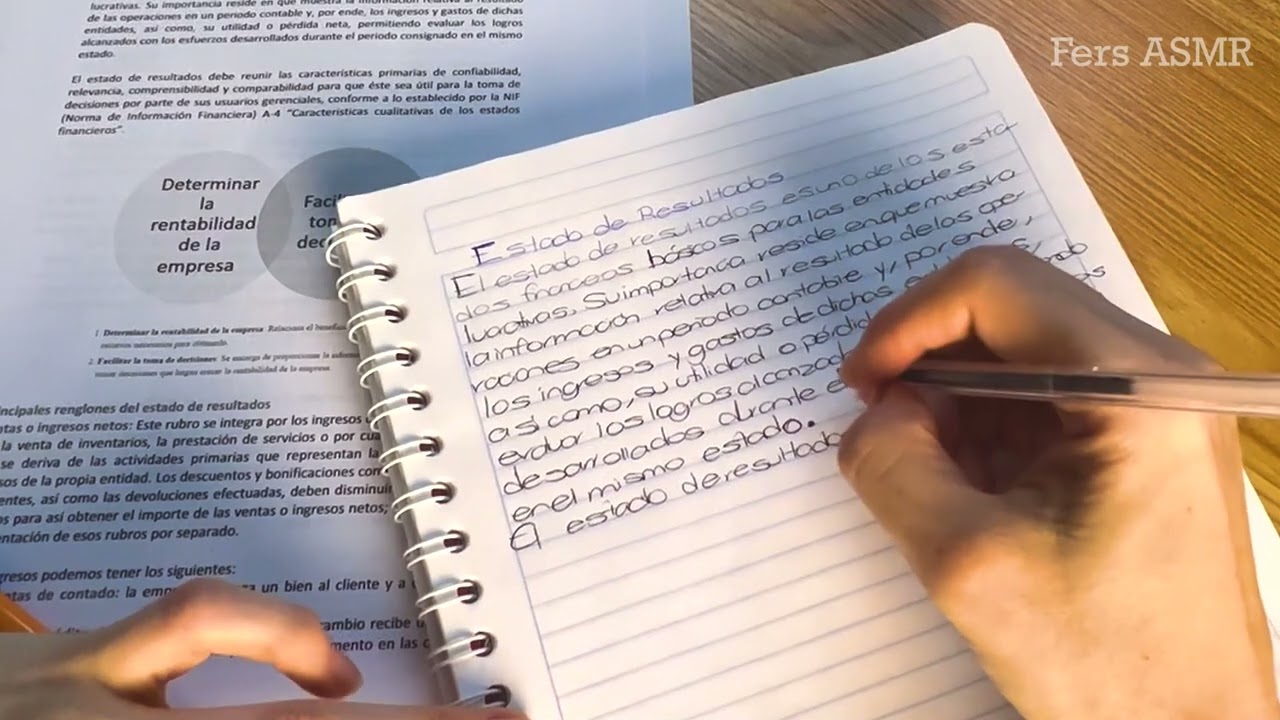 lucrativas. Su importancia reside en que muestra la información relativa al resultado
de las operaciones en un periodo contable y, por ende, los ingresos y gastos de dichas
entidades, así como, su utilidad o pérdida neta, permitiendo evaluar los logros
alcanzados con los esfuerzos desarrollados durante el periodo consignado en el mismo
estado.
El estado de resultados debe reunir las características primarias de confiabilidad,
relevancia, comprensibilidad y comparabilidad para que éste sea útil para la toma de
decisiones por parte de sus usuarios gerenciales, conforme a lo establecido por la NIF
(Norma de Información Financiera) A-4 "Características cualitativas de los estados
financieros".
Determinar
la
rentabilidad
de la
empresa
1. Determinar la rentabilidad de la empresa
2. Facilitar la toma de decisiones: Se encarga de proporcionar la
rentabilidad de la empresa.
renglones del estado de resultados
o ingresos netos: Este rubro se integra por los ingresos
la venta de inventarios, la prestación de servicios o por
se deriva de las actividades primarias que representan
de la propia entidad. Los descuentos y bonificaciones
así como las devoluciones efectuadas, deben
para así obtener el importe de las ventas o ingresos netos;
de esos rubros por separado.
podemos tener los siguientes:
de contado: la un bien al cliente y a
recibe
en las
Estado de Resultados
El estado de resultados es uno de los esta-
dos financeas básicos para las entidades
lucrativas. Su importancia reside en que muestra
la información relativa al resultado de las ope-
raciones en un periodo contable y, por ende,
los ingresos y gastos de dichas
así como, su utilidad o
evaluar los logros
desarrollados durante
en el mismo estado.
El estado de resultado
Fers ASMR